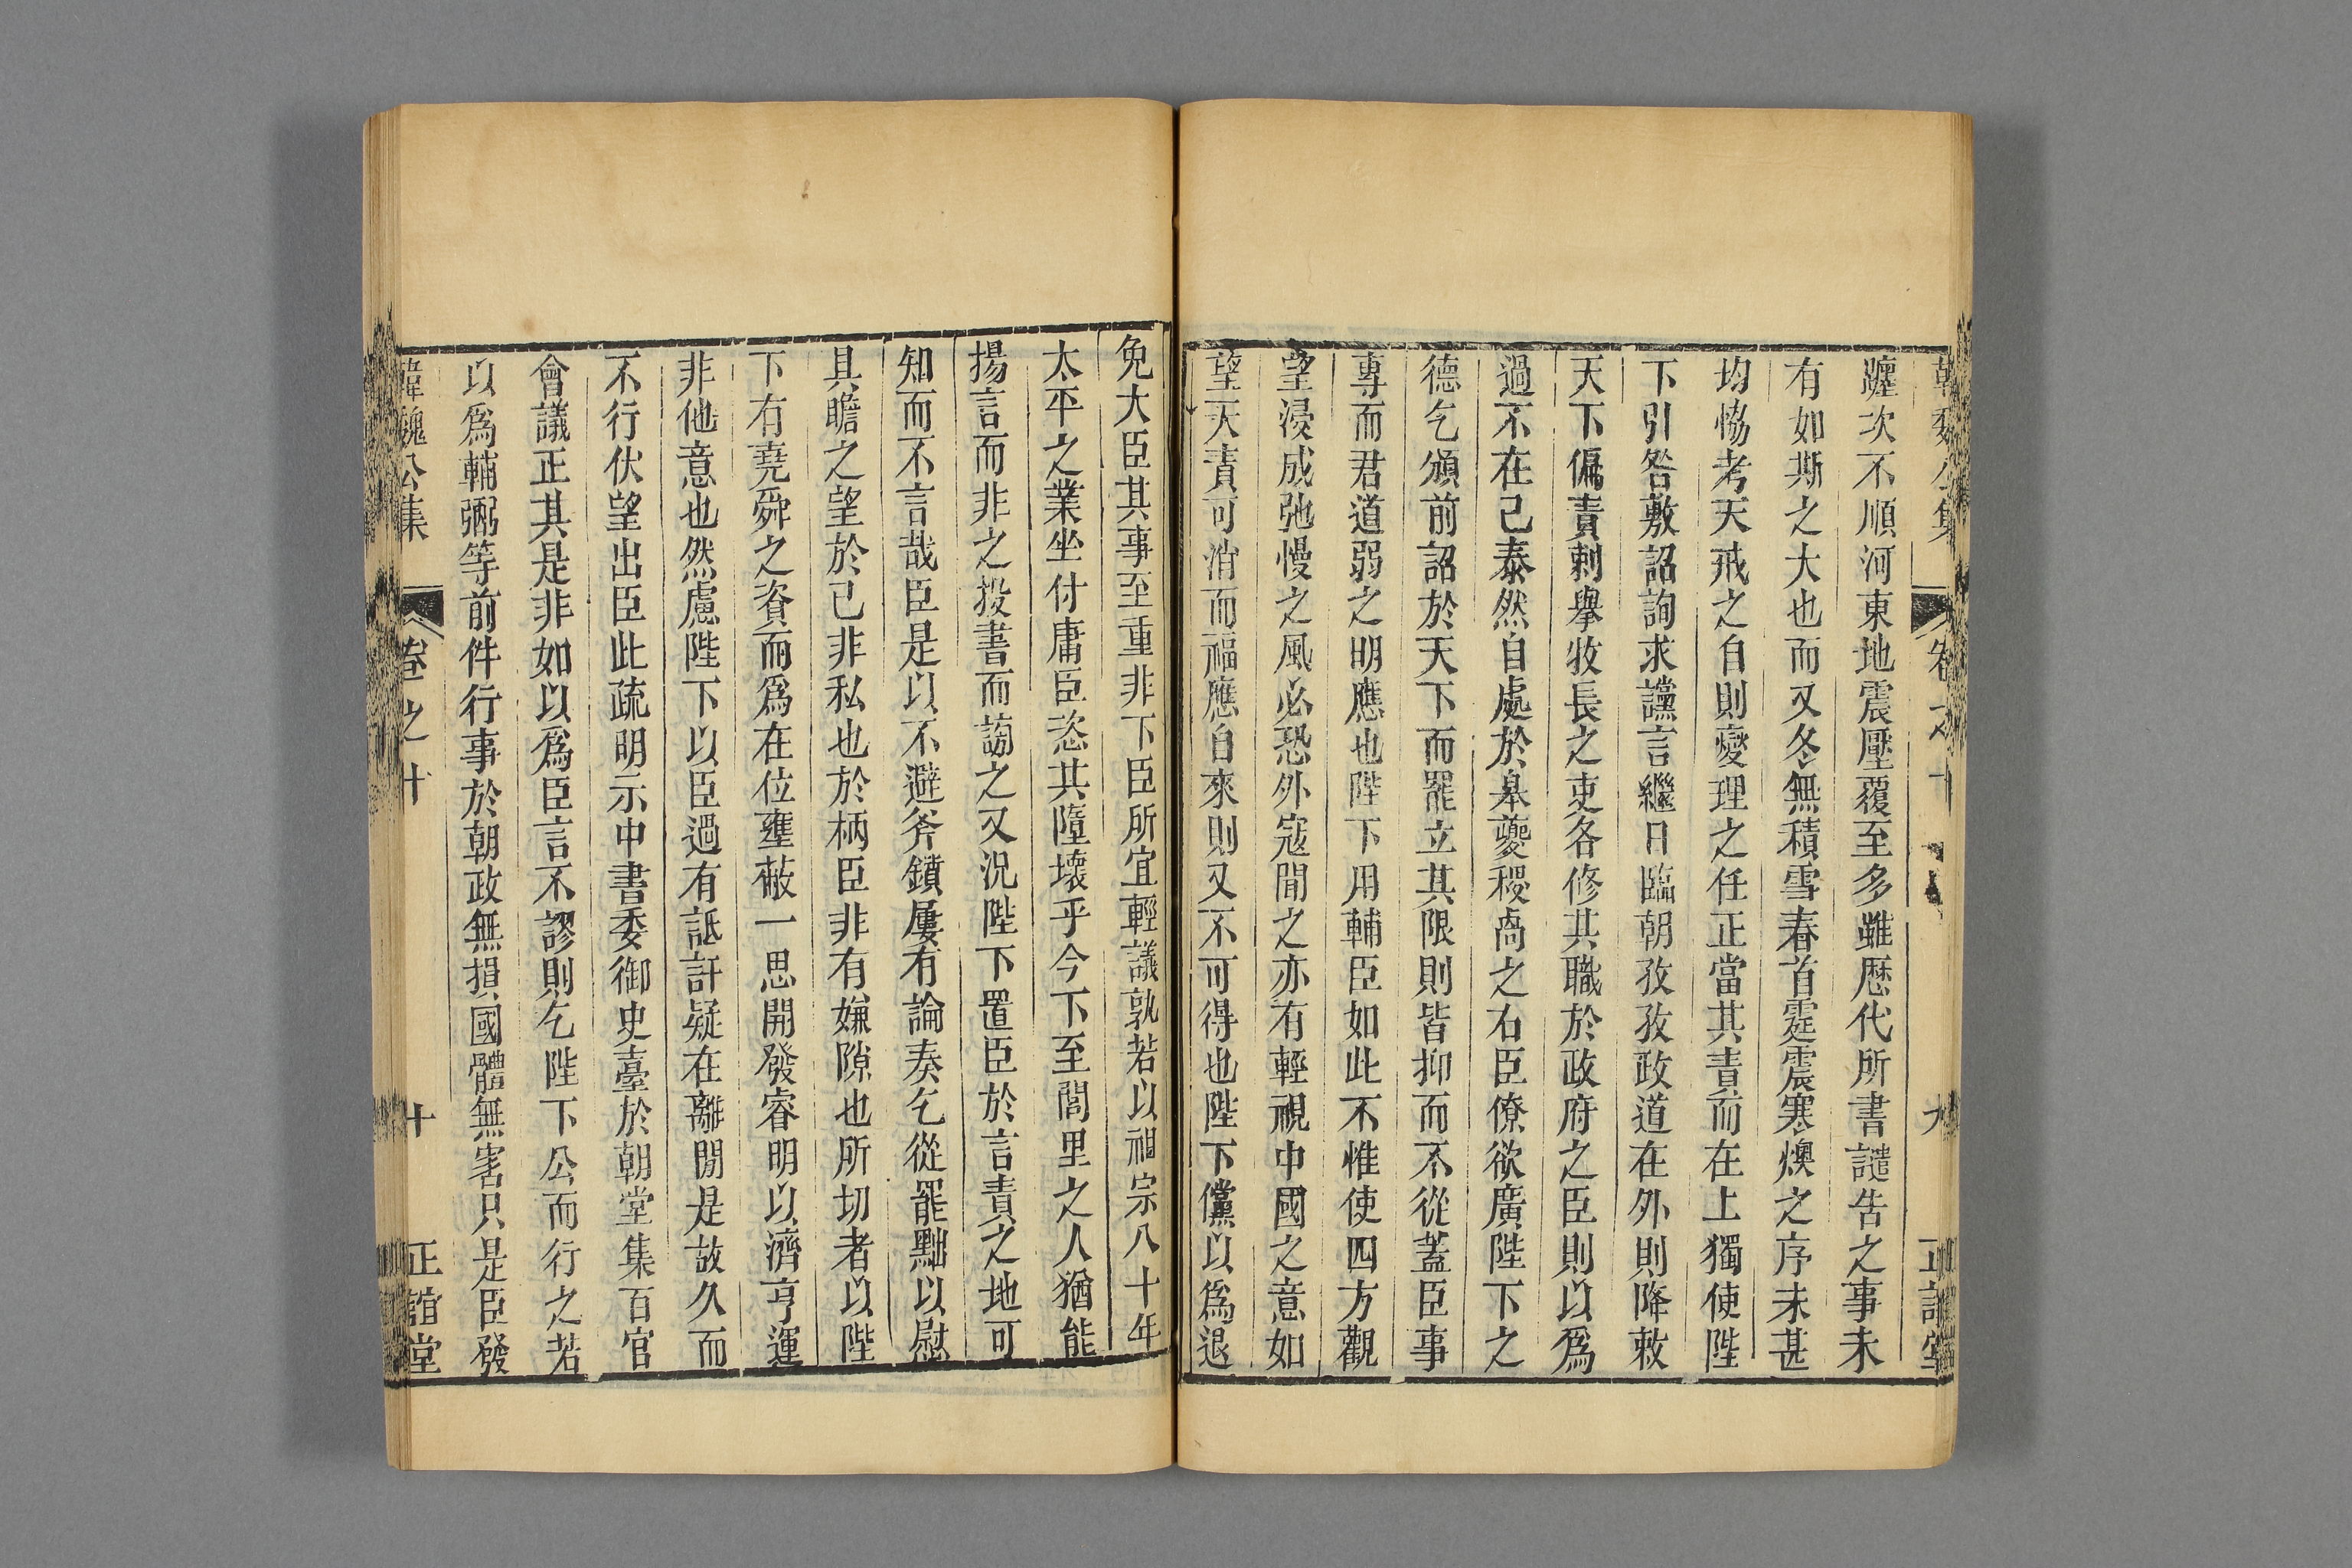 韓魏公集 卷之十 九 正誼堂
躔次不順河東地震壓覆至多雖歷代所書譴告之事未
有如斯之大也而又冬無積雪春首霆震寒燠之序未甚
均恊考天戒之自則變理之任正當其責而在上獨使陛
下引咎敷詔詢求讜言繼日臨朝孜孜政道在外則降敕
天下偏責刺舉牧長之吏各修其職於政府之臣則以爲
過不在己泰然自處於皋夔稷卨之右臣僚欲廣陛下之
德乞頒前詔於天下而罷立其限則皆抑而不從蓋臣事
專而君道弱之明應也陛下用輔臣如此不惟使四方觀
望浸成弛慢之風必恐外寇聞之亦有輕視中國之意如
望天責可消而福應自來則又不可得也陛下儻以爲退
免大臣其事至重非下臣所宜輕議孰若以祖宗八十年
太平之業坐付庸臣恣其隳壞乎今下至閭里之人猶能
揚言而非之投書而謗之又況陛下置臣於言責之地可
知而不言哉臣是以不避斧鑕屢有論奏乞從罷黜以慰
具瞻之望於已非私也於柄臣非有嫌隙也所切者以陛
下有堯舜之資而爲在位壅蔽一思開發睿明以濟亨運
非他意也然慮陛下以臣過有詆訐疑在離閒是故久而
不行伏望出臣此疏明示中書委御史臺於朝堂集百官
會議正其是非如以爲臣言不謬則乞陛下公而行之若
以爲輔弼等前件行事於朝政無損國體無害只是臣發
韓魏公集 卷之十 十 正誼堂